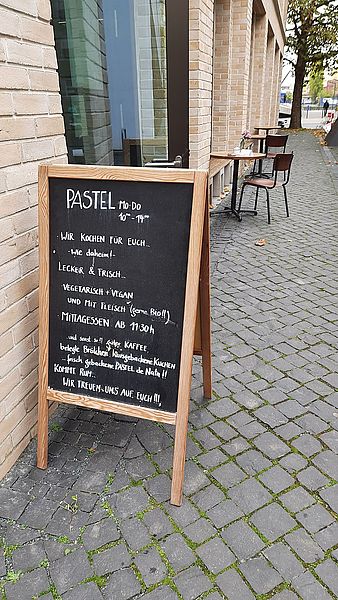 PASTEL Mo-Do
10⁰⁰ - 14⁰⁰
WIR KOCHEN FÜR EUCH...
- wie daheim! -
LECKER & FRISCH...
VEGETARISCH + VEGAN
UND MIT FLEISCH (gerne Bio!!)
MITTAGESSEN AB 11:30h
und sonst so?! guter KAFFEE
belegte Brötchen hausgebackene KUCHEN
... frisch gebackene PASTEL de Nata!!
KOMMT RUM...
WIR FREUEN UNS AUF EUCH!!!